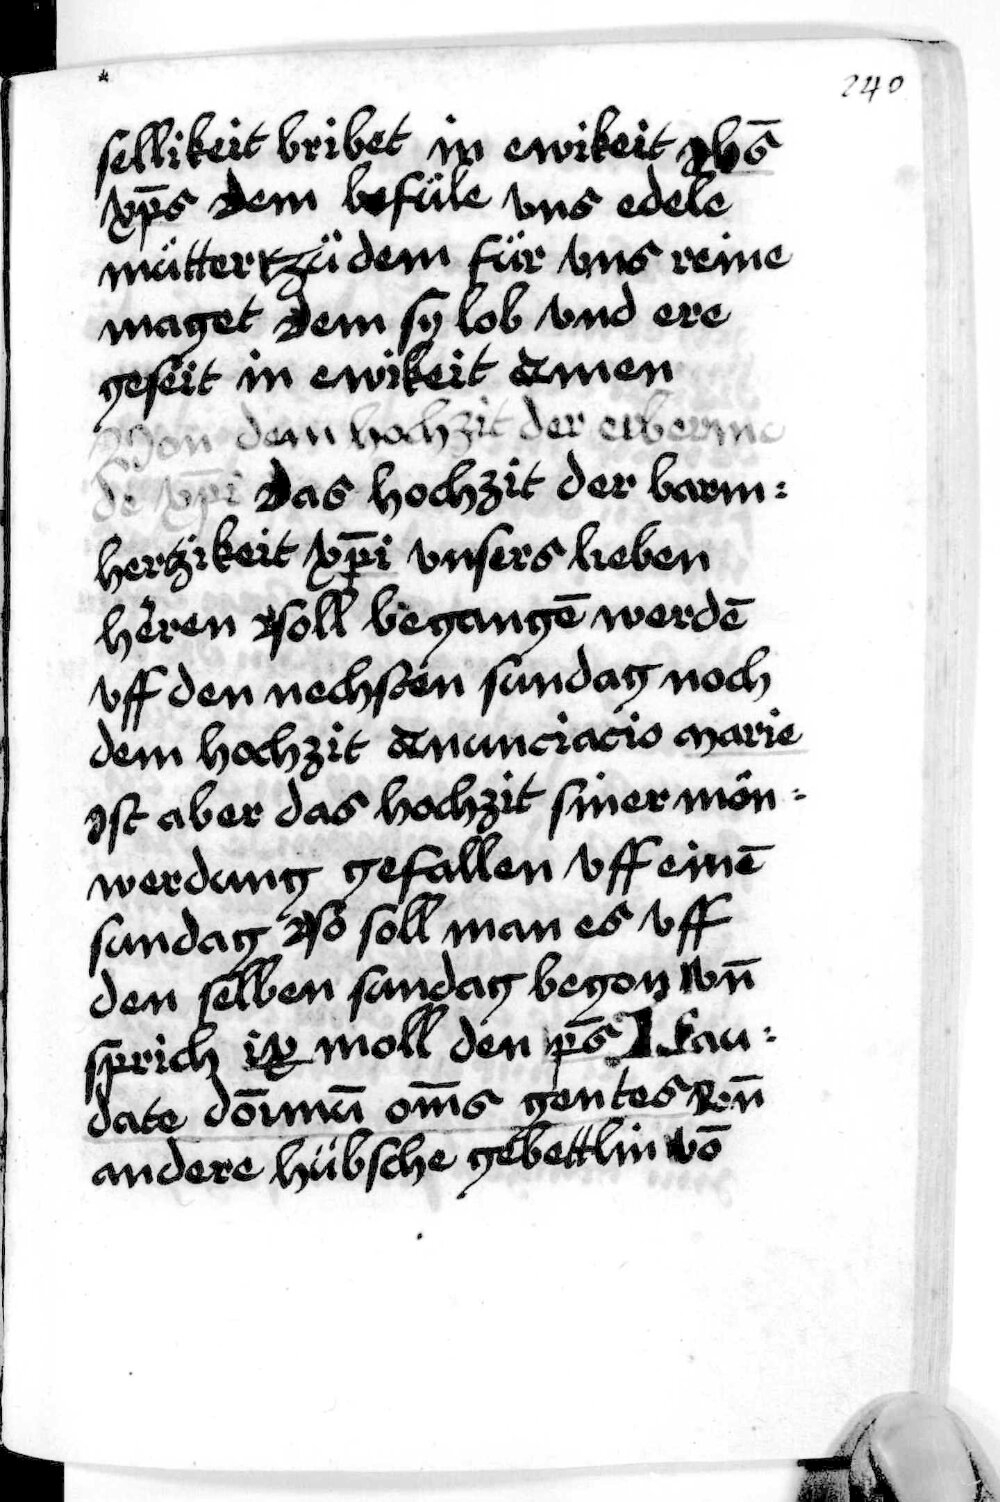 240
sellikeit bribet in ewikeit Jhs̄
xp̄s Dem befüle vns edele
mütter tzü dem für vns reine
maget Dem sy lob vnd ere
geseit in ewikeit Amen
Von dem hochzit der erberme
de xp̄i Das hochzit der barm:
hertzikeit xp̄i vnsers lieben
heren Soll begangē werdē
vff den nechsten sundag noch
dem hochzit Anunciacio marie
Ist aber das hochzit siner mön:
werdung gefallen vff einē
sundag So soll man es vff
den selben sundag begon vn̄
sprich ix moll den ps̄ Lau:
date dōīmū om̄s gentes vn̄
andere hübsche gebettlin vō